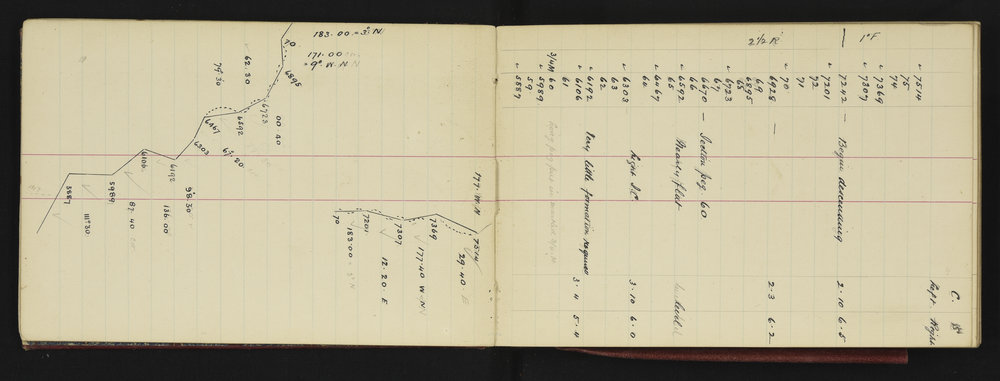 183.00 = 3° N
171.00
= 9° W. N
70
6895
62.30
79.30
6723
00 40
6592
6467
67.20
6303
6192
6106
98.30
136.00
5989
87.40
5887
111.30
177. W.N
7514
29.40 E
7369
177.40 W.N
7307
12.20 E
7201
183.00 = 3° N
70
C.
Left Right
1° F
2 1/2 R
7514
75
74
7369
7307
7242 — Begin descending 2.10 6.5
72
7201
71
70
6928 — 2.3 6.2
69
6895
68
6723
67
66
6670 — Section peg. 60
6592 Nearly flat
65
6467
64
6303 Light S.C. 3.10 6.0
63
62
6192 Very little formation required 3.4 5.4
6106
61
3/4 M 60
5989
59
5887